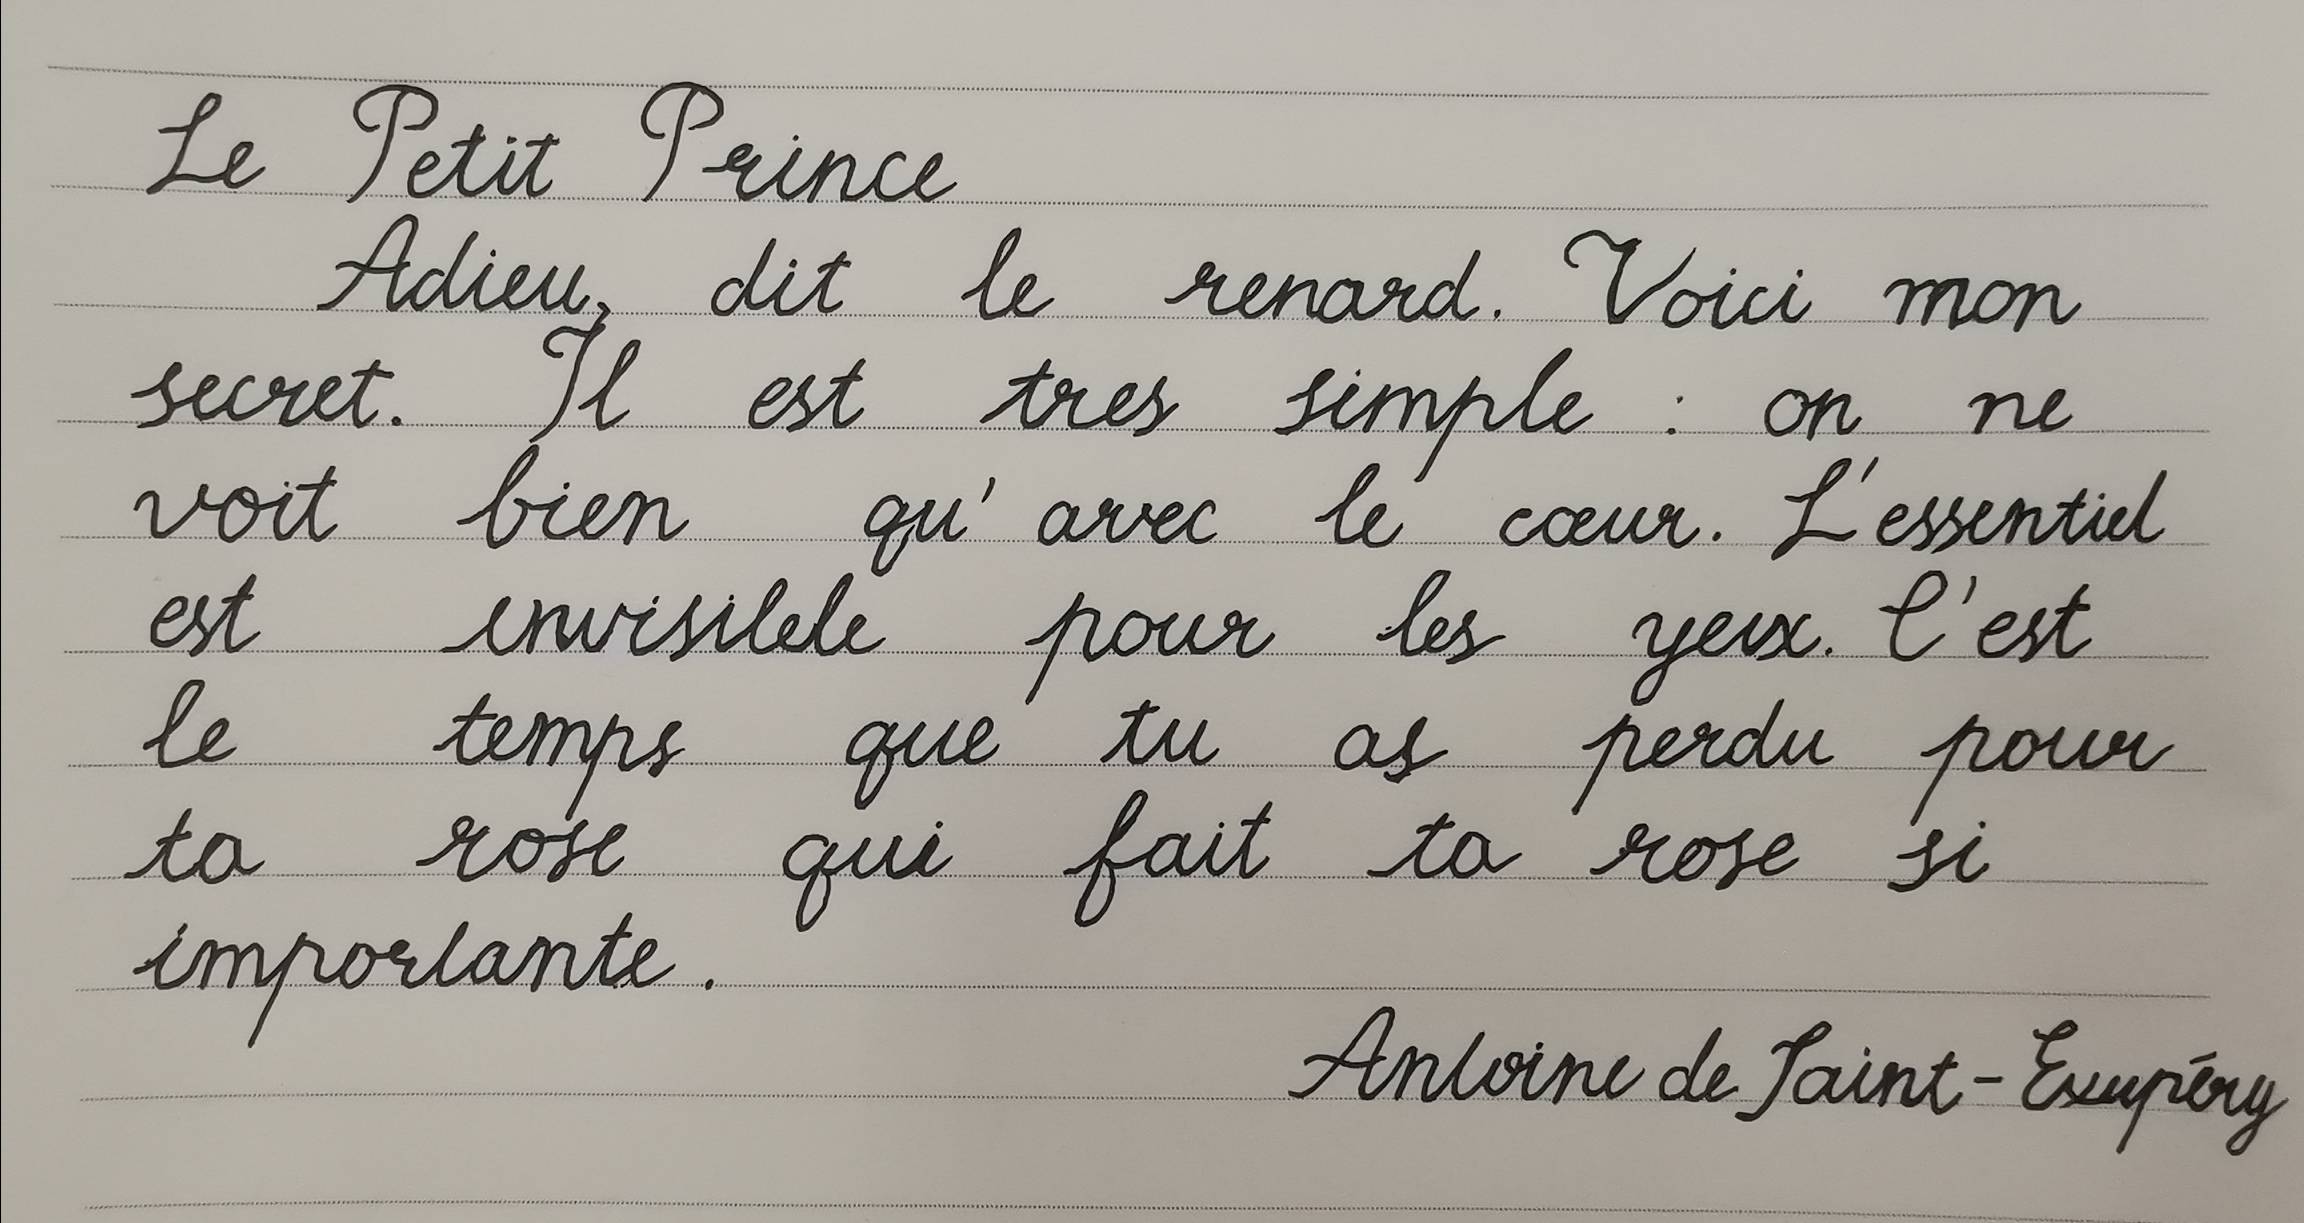 Le Petit Prince
Adieu, dit le renard. Voici mon
secret. Il est tres simple : on ne
voit bien qu'avec le cœur. L'essentiel
est invisible pour les yeux. C'est
le temps que tu as perdu pour
ta rose qui fait ta rose si
importante.
Antoine de Saint-Exupéry